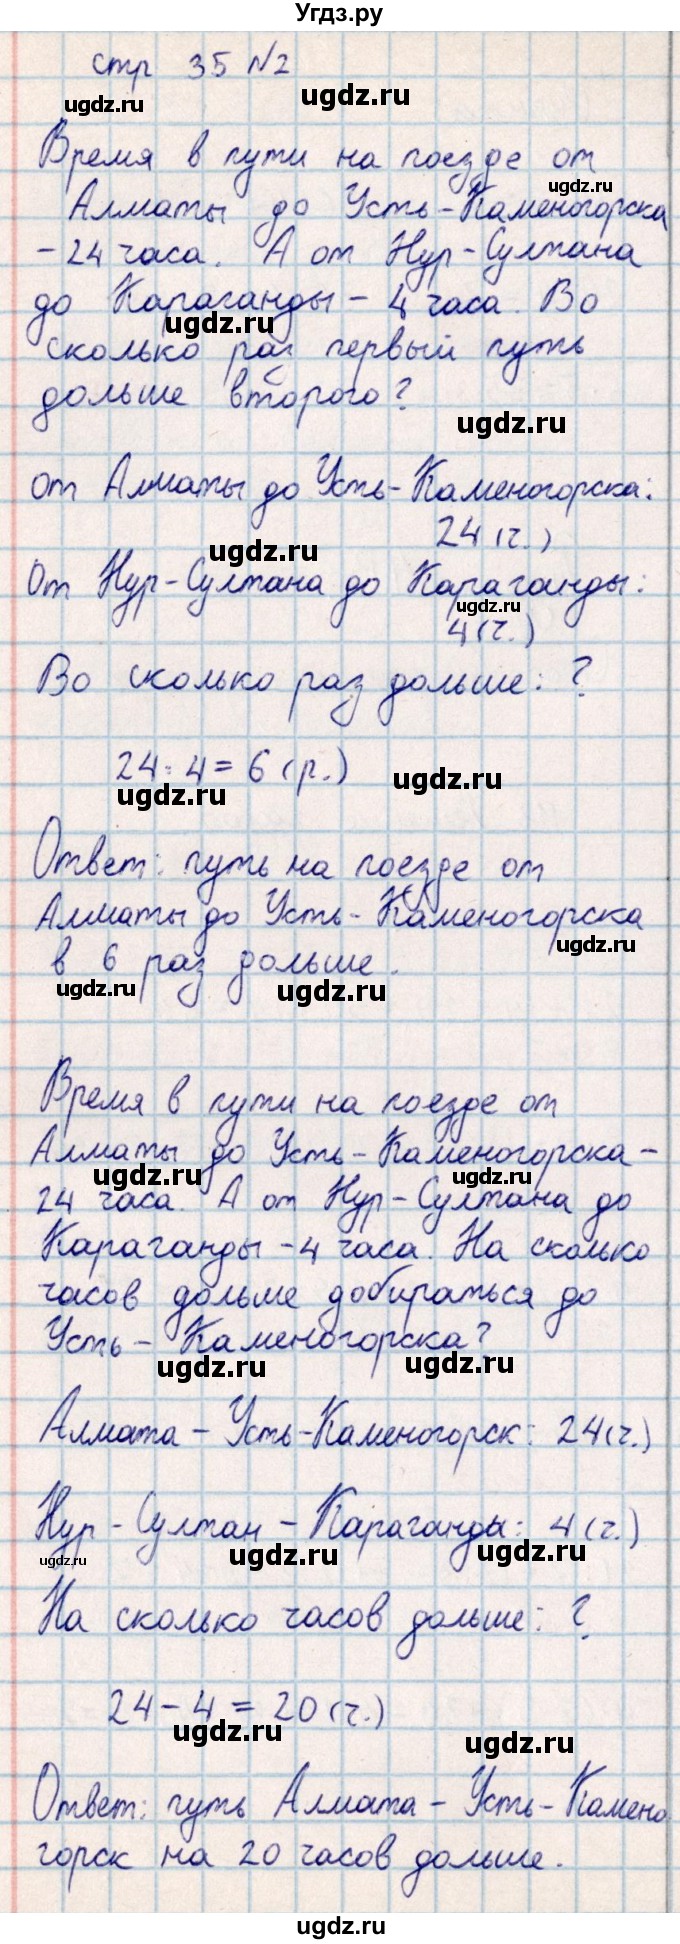 Угдз.ру
стр 35 №2
ugdz.ru ugdz.ru
Время в пути на поезде от
ugdz.ru
Алматы до Усть-Каменогорска
-24 часа. А от Нур-Султана
до Караганды - 4 часа. Во
ugdz.ru
сколько раз первый путь
дольше второго?
ugdz.ru
от Алматы до Усть-Каменогорска:
24 (ч.)
ugdz.ru
От Нур-Султана до Караганды:
ugdz.ru
4 (ч.)
Во сколько раз дольше: ?
24:4=6 (р.)
ugdz.ru ugdz.ru
Ответ: путь на поезде от
Алматы до Усть-Каменогорска
ugdz.ru
в 6 раз дольше.
ugdz.ru ugdz.ru
Время в пути на поезде от
Алматы до Усть-Каменогорска-
ugdz.ru ugdz.ru
24 часа. А от Нур-Султана до
Караганды -4 часа. На сколько
часов дольше добираться до
Усть-Каменогорска?
ugdz.ru ugdz.ru
Алмата - Усть-Каменогорск: 24(ч.)
Нур-Султан - Караганды: 4(ч.)
ugdz.ru ugdz.ru ugdz.ru
На сколько часов дольше: ?
24-4=20 (ч.)
ugdz.ru ugdz.ru
Ответ: путь Алмата - Усть-Камено
горск на 20 часов дольше.
ugdz.ru